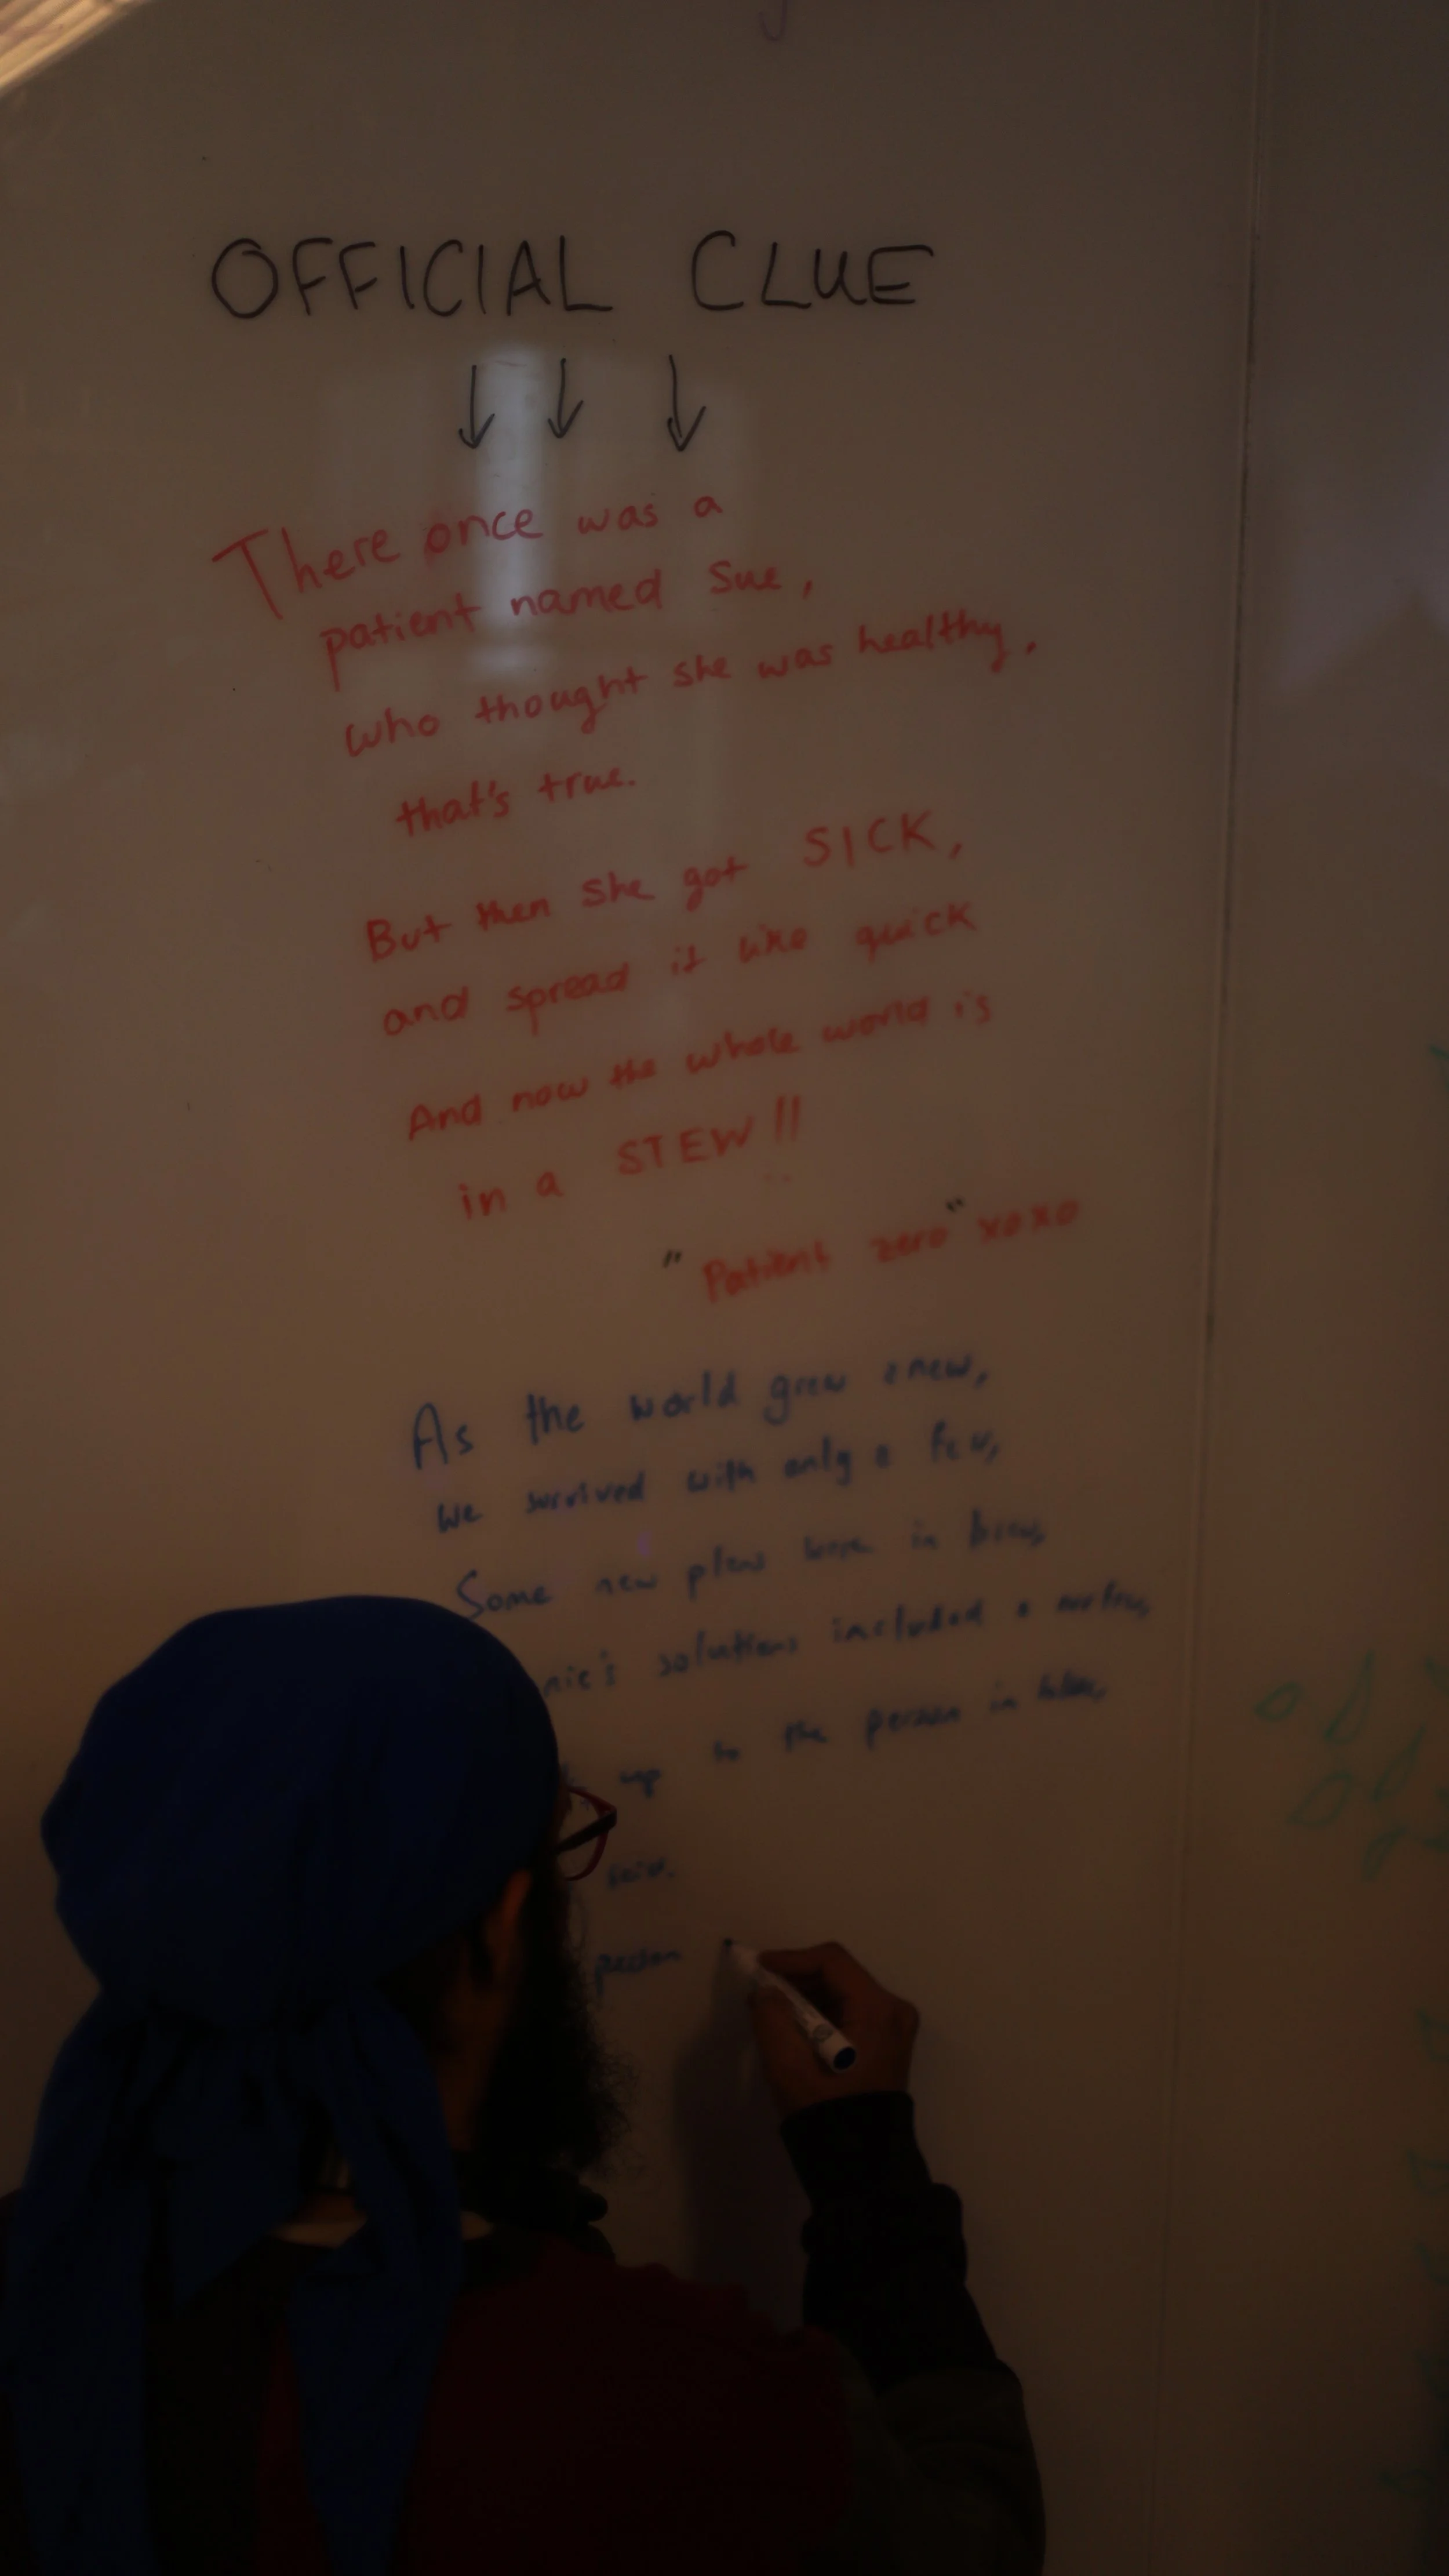 OFFICIAL CLUE
There once was a
patient named Sue,
who thought she was healthy,
that's true.
But then she got SICK,
and spread it like quick
And now the whole world is
in a STEW!!
"Patient zero" xoxo
As the world grew anew,
We survived with only a few,
Some new plans were in brew,
solutions included a
up to the person in
person